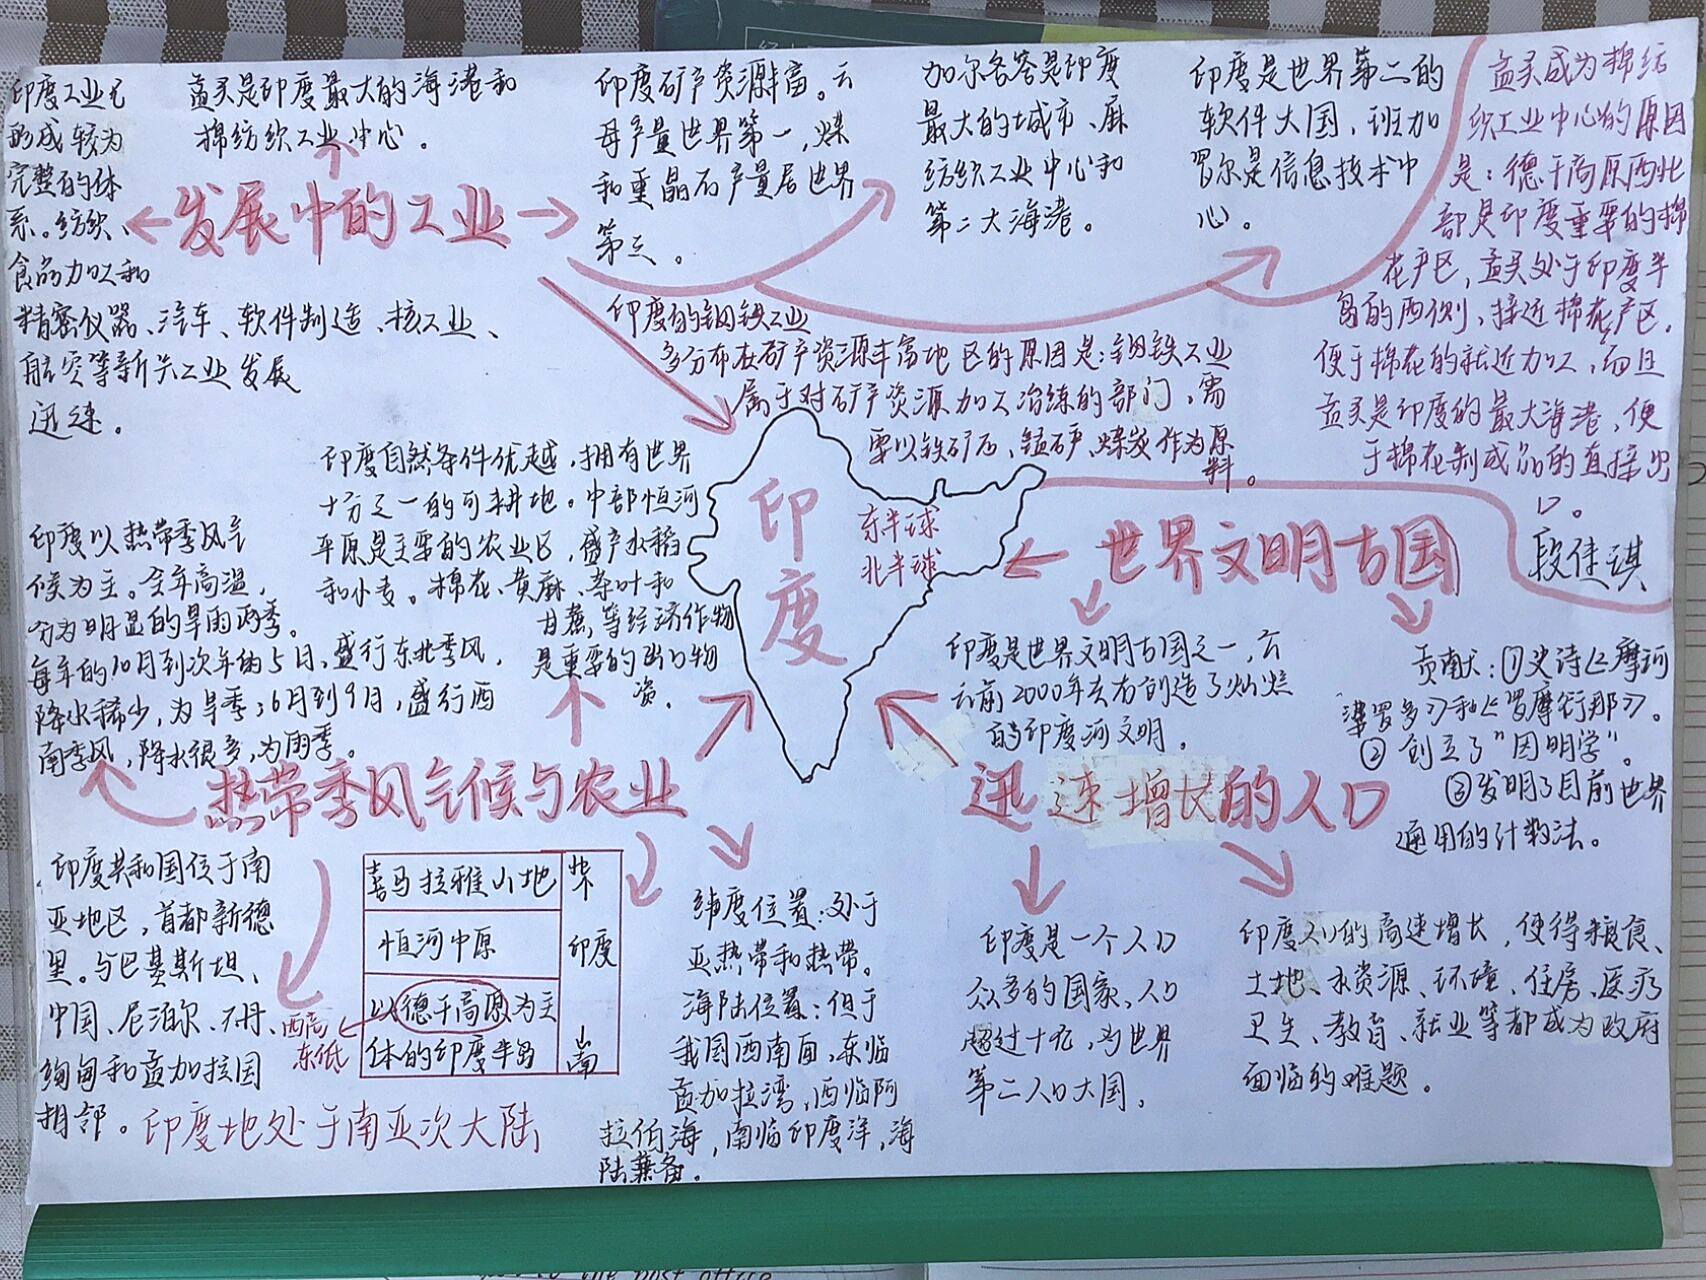 印度工业已
形成较为
完整的体
系。纺织、
食品加工和
精密仪器、汽车、软件制造、核工业、
航空等新兴工业发展
迅速。
孟买是印度最大的海港和
棉纺织工业中心。
发展中的工业
印度矿产资源丰富。云
母产量世界第一,煤
和重晶石产量居世界
第三。
加尔各答是印度
最大的城市、麻
纺织工业中心和
第二大海港。
印度是世界第二的
软件大国,班加
罗尔是信息技术中
心。
孟买成为棉纺
织工业中心的原因
是:德干高原西北
部是印度重要的棉
花产区,孟买处于印度半
岛的西侧,接近棉花产区,
便于棉花的就近加工,而且
孟买是印度的最大海港,便
于棉花制成品的直接出
口。
段佳琪
印度的钢铁工业
多分布在矿产资源丰富地区的原因是:钢铁工业
属于对矿产资源加工冶练的部门,需
要以铁矿石、锰矿、煤炭作为原
料。
印度自然条件优越,拥有世界
十分之一的可耕地。中部恒河
平原是主要的农业区,盛产水稻
和小麦。棉花、黄麻、茶叶和
甘蔗,等经济作物
是重要的出口物
资。
印度以热带季风气
候为主。全年高温,
分为明显的旱雨两季。
每年的10月到次年的5月,盛行东北季风,
降水稀少,为旱季;6月到9月,盛行西
南季风,降水很多,为雨季。
印度
东半球
北半球
世界文明古国
印度是世界文明古国之一,公
元前2000年去右创造了灿烂
的印度河文明。
贡献:①史诗《摩诃
婆罗多》和《罗摩衍那》。
②创立了“因明学”。
③发明了目前世界
通用的计数法。
热带季风气候与农业
迅速增长的人口
印度共和国位于南
亚地区,首都新德
里。与巴基斯坦、
中国、尼泊尔、不丹、
缅甸和孟加拉国
相邻。
印度地处于南亚次大陆
西高
东低
喜马拉雅山地
恒河中原
以德干高原为主
体的印度半岛
北
印度
南
纬度位置:处于
亚热带和热带。
海陆位置:但于
我国西南面,东临
孟加拉湾,西临阿
拉伯海,南临印度洋,海
陆兼备。
印度是一个人口
众多的国家,人口
超过十亿,为世界
第二人口大国,
印度人口的高速增长,使得粮食、
土地、水资源、环境、住房、医疗
卫生、教育、就业等都成为政府
面临的难题。
the post office